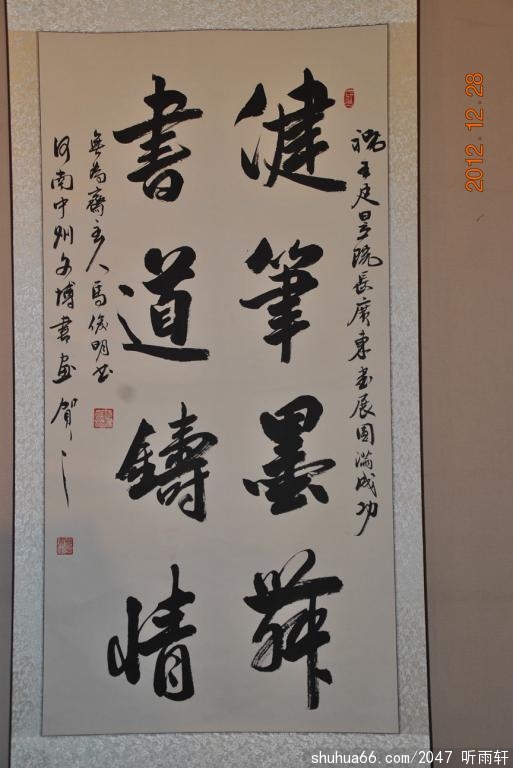 祝王廷景院長廣東書展圓满成功
健筆墨舞
書道鑄情
無為齋主人馬俊明书
河南中州文博書画賀之
2012.12.28
shuhua66.com/2047 听雨轩